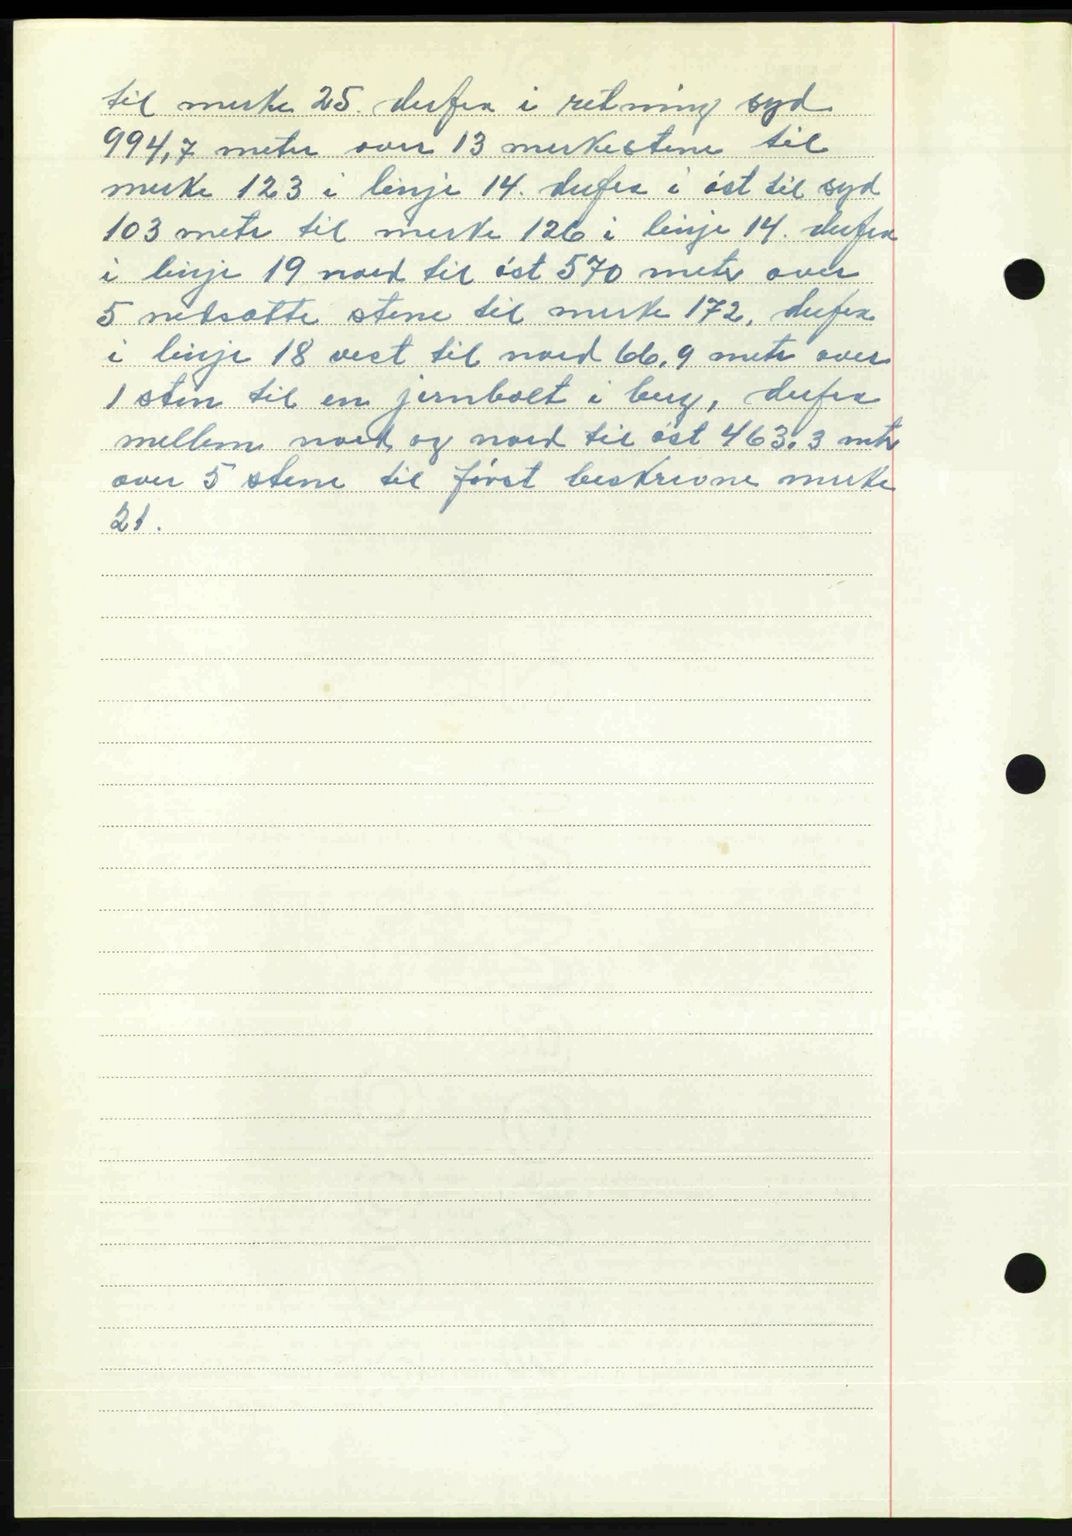 til merke 25. derfra i retning syd
994,7 meter over 13 merkestene til
merke 123 i linje 14. derfra i öst til syd
103 metr til merke 126 i linje 14. derfra
i linje 19 nord til öst 570 metr over
5 nedsatte stene til merke 172, derfra
i linje 18 vest til nord 66,9 metr over
1 sten til en jernbolt i berg, derfra
mellem nord og nord til öst 463.3 metr
over 5 stene til först beskrevne merke
21.